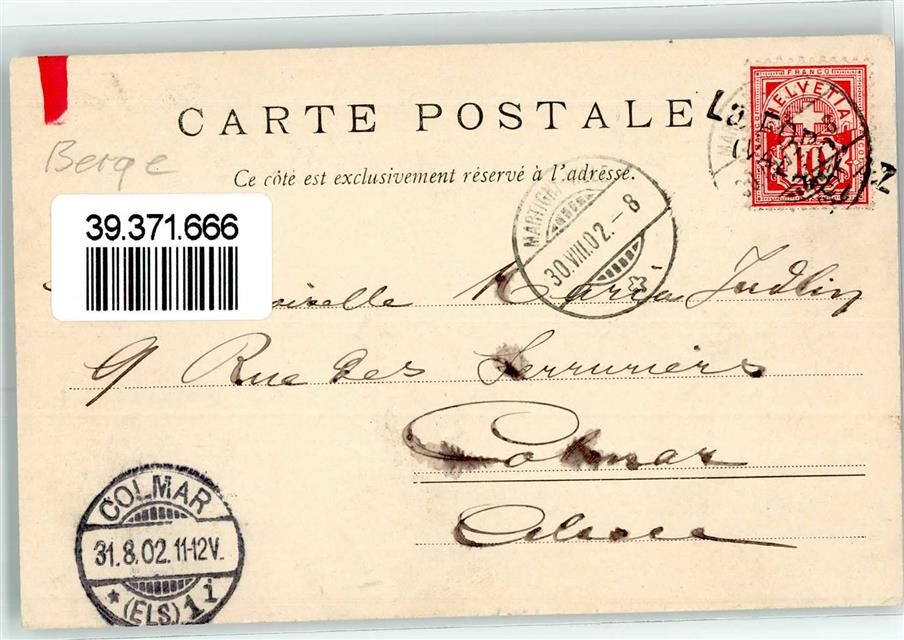 CARTE POSTALE
Berge
Ce côté est exclusivement réservé à l'adresse.
FRANCO
HELVETIA
10
39.371.666
30.VIII.02.-8
Maria Judlin
9 Rue des Serruriers
Colmar
Alsace
COLMAR
31.8.02.11-12V.
* (ELS) 1 i